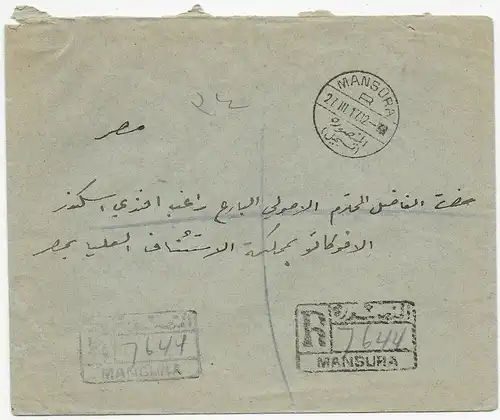 MANSURA
R
27.III.17.12-
المنصورة
(تسجيل)
مصر
حضرة الفاضل المحترم الاصولي البارع راغب افندي اسكندر
الافوكاتو بمحكمة الاستئناف العليا بمصر
R المنصورة
7644
MANSURA
R المنصورة
7644
MANSURA